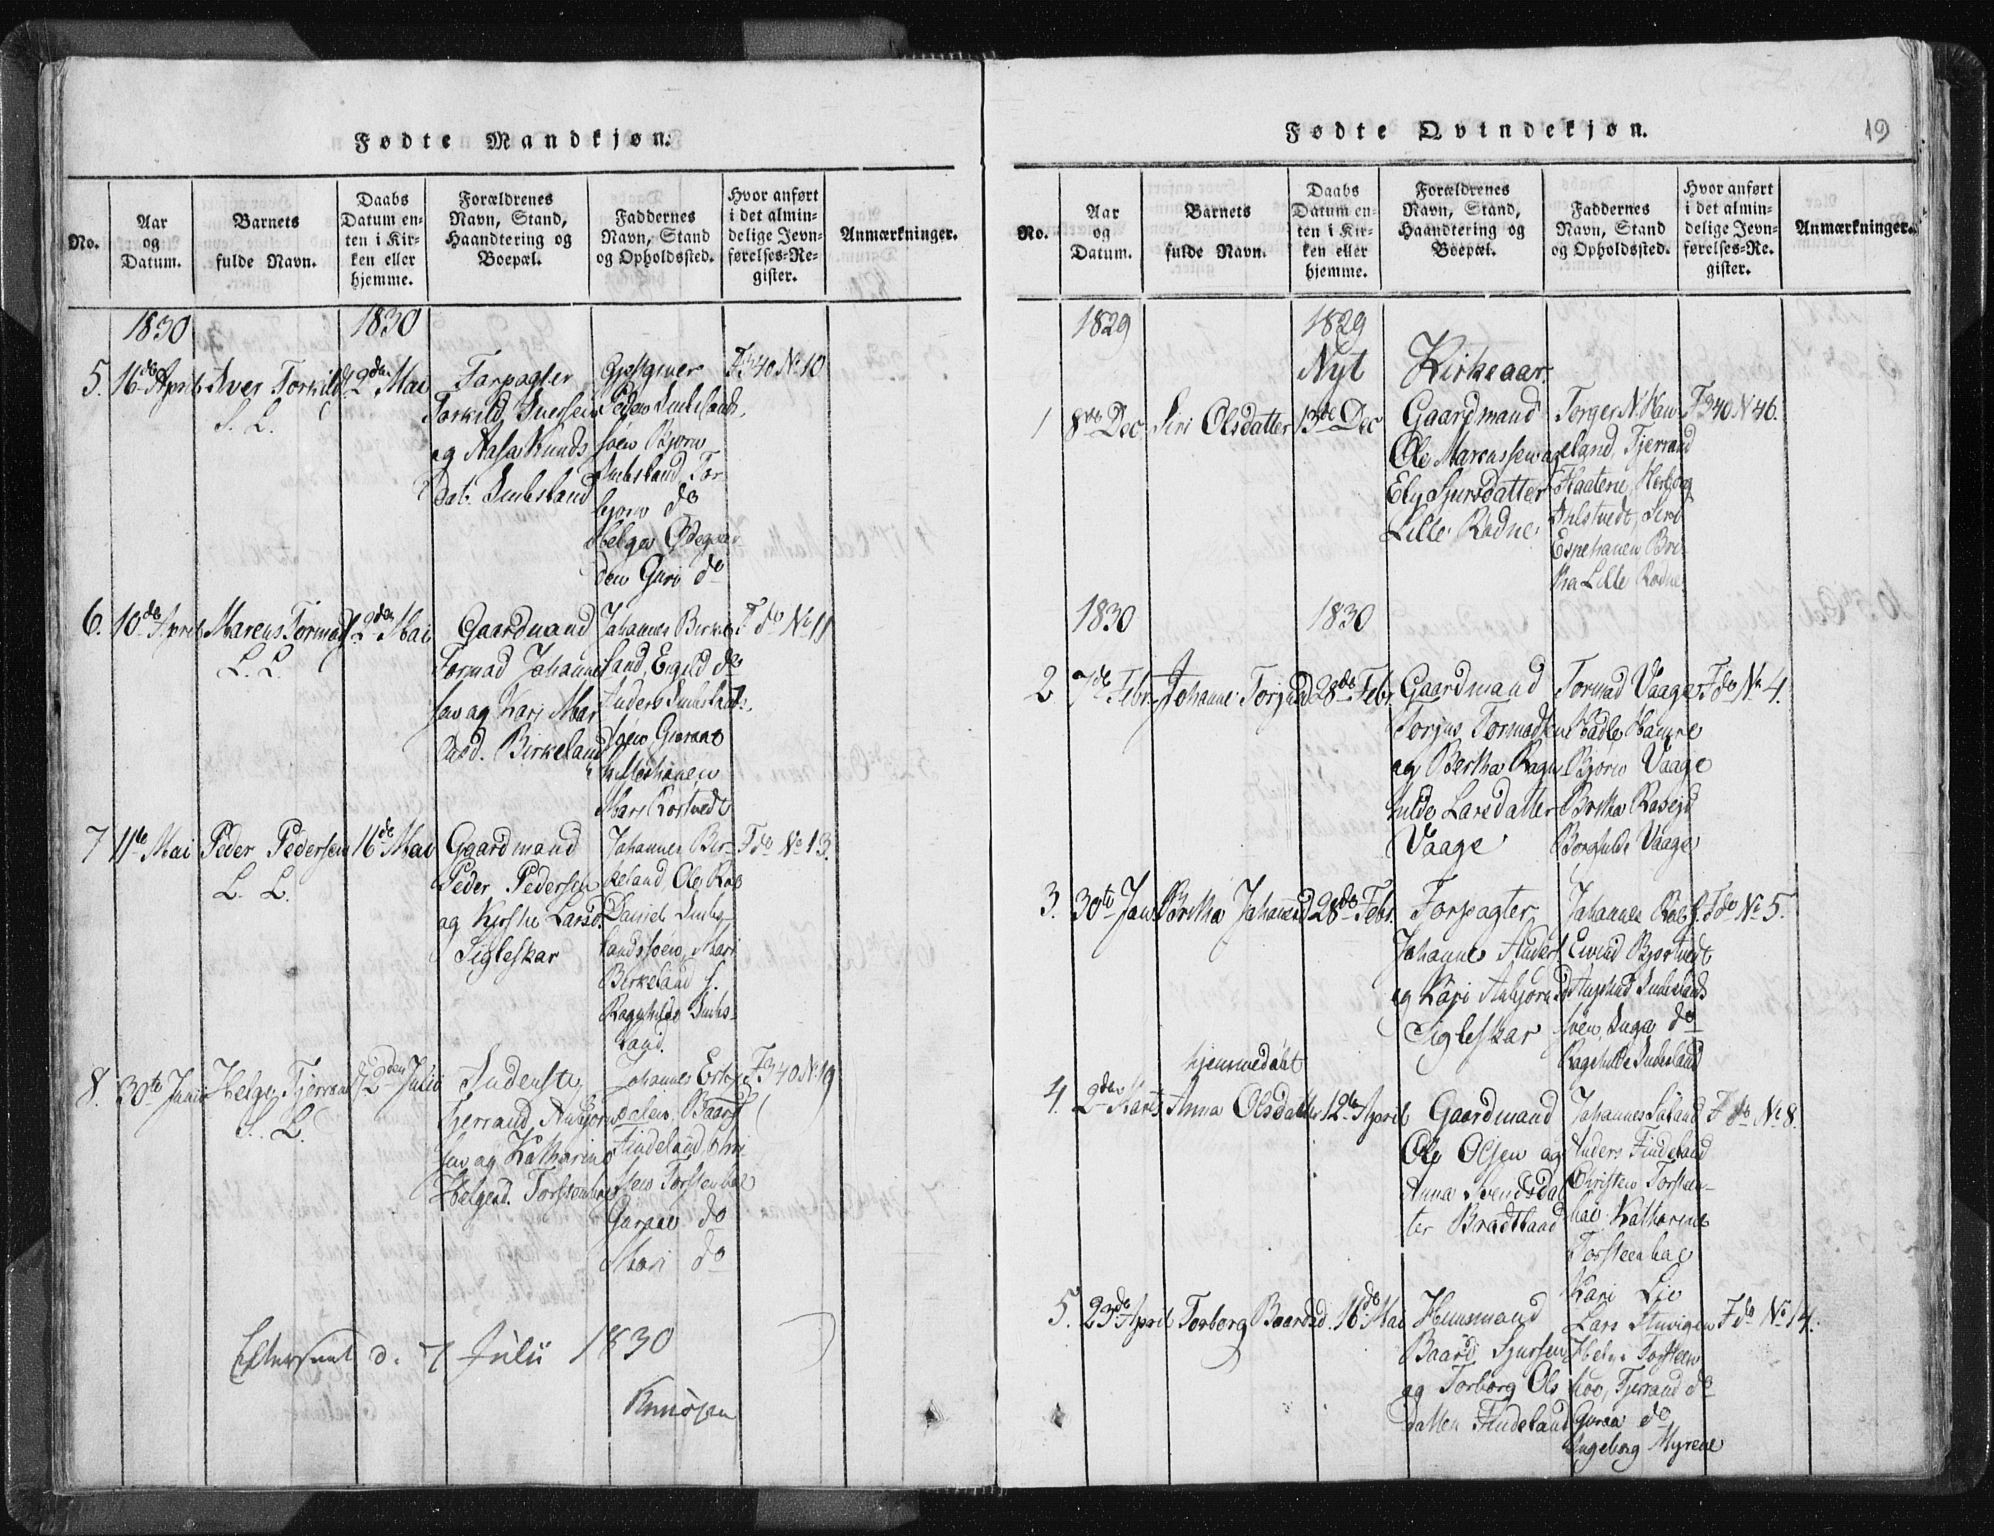 Fødte Mandkjøn.
No.
Aar
og
Datum.
Barnets
fulde Navn.
Daabs
Datum en-
ten i Kir-
ken eller
hjemme.
Forældrenes
Navn, Stand,
Haandtering og
Boepæl.
Faddernes
Navn, Stand
og Opholdssted.
Hvor anført
i det almin-
delige Jevn-
førelses-Re-
gister.
Anmærkninger.
1830
1830
5. 16de April
Iver Torkilds
S. L.
2den Mai
Forpagter
Torkild Iversen
og Aasa Knuds
Dat. Imbsland
Peder Imbslands
søen Bjørn
Imbsland, Tor
bjørn do
Helge
den Guri do
F 340 No 10
6. 10de April
Marcus Tormods
L. L.
2den Mai
Gaardmand
Tormod Johanne
sen og Kari Mar
Birkeland
Johannes Birke
land, Eigeld do
Anders Imbslands
søen
Mari
F do No 11
7 11te Mai
Peder Pedersen
L. L.
16de Mai
Gaardmand
Peder Pedersen
og Kirstie Larsd.
Sigleskar
Johannes Bir-
keland, Ole
Daniel Imbs-
landssøen, Mari
Birkeland
Ragnhilde Imbs-
land.
F do No 13.
8. 30te Junii
Helge Tjerrand
S. L.
2den Julii
Tjerrand Asbjørn
sen og Katharine
Helgesd. Torstenhoe
Johannes
Baard
Findeland
sten Torstenhoe
Guraae do
Mari do
F 340 No 19
Efterseet d. 7 Julii 1830
Fødte Qvindekjøn.
19
No.
Aar
og
Datum.
Barnets
fulde Navn.
Daabs
Datum en-
ten i Kir-
ken eller
hjemme.
Forældrenes
Navn, Stand,
Haandtering og
Boepæl.
Faddernes
Navn, Stand
og Opholdssted.
Hvor anført
i det almin-
delige Jevn-
førelses-Re-
gister.
Anmærkninger.
1829
1829
Nyt Kirkeaar.
1 8de Dec
Siri Olsdatter
13de Dec
Gaardmand
Ole Marcussen og
Ely Sjursdatter
Lille Rødne
Torger N. Hau
eland, Tjerrand
Siri
Espehauen Bri
tha Lille Rødne
F 340 N 46.
1830
1830
2 7de Febr.
Johanne Torjusd
28de Febr.
Gaardmand
Torjus Tormodsen
og Bertha Ragn
hilde Larsdatter
Vaage
Tormod Vaage
Bjørn Vaage
Borghilde Vaage
F do No 4.
3. 30te Jan
Brittha Johannesd
28de Febr.
Forpagter
Johannes Anders
og Kari Asbjørnsd
Sigleskar
Johannes
Eivind
Imbslands
søen, Inga do
Ragnhilde Imbsland
F do No 5.
hjemmedøbt
4. 2den Marts
Anna Olsdatter
12te April
Gaardmand
Ole Olsen og
Anna Svendsdat
ter Bradtland
Johannes
Anders Findeland
Christen Torsteen-
hoe Katharine
Torsteenhoe
Kari Lie
F do No 8.
5. 23de April
Torborg Baardsd.
16de Mai
Huusmand
Baard Sjursen
og Torborg Ols
datter Findeland
Lars
Helge Torsteen
hoe, Tjerrand do
Guraa do
Ingeborg Myrene
F do No 14.